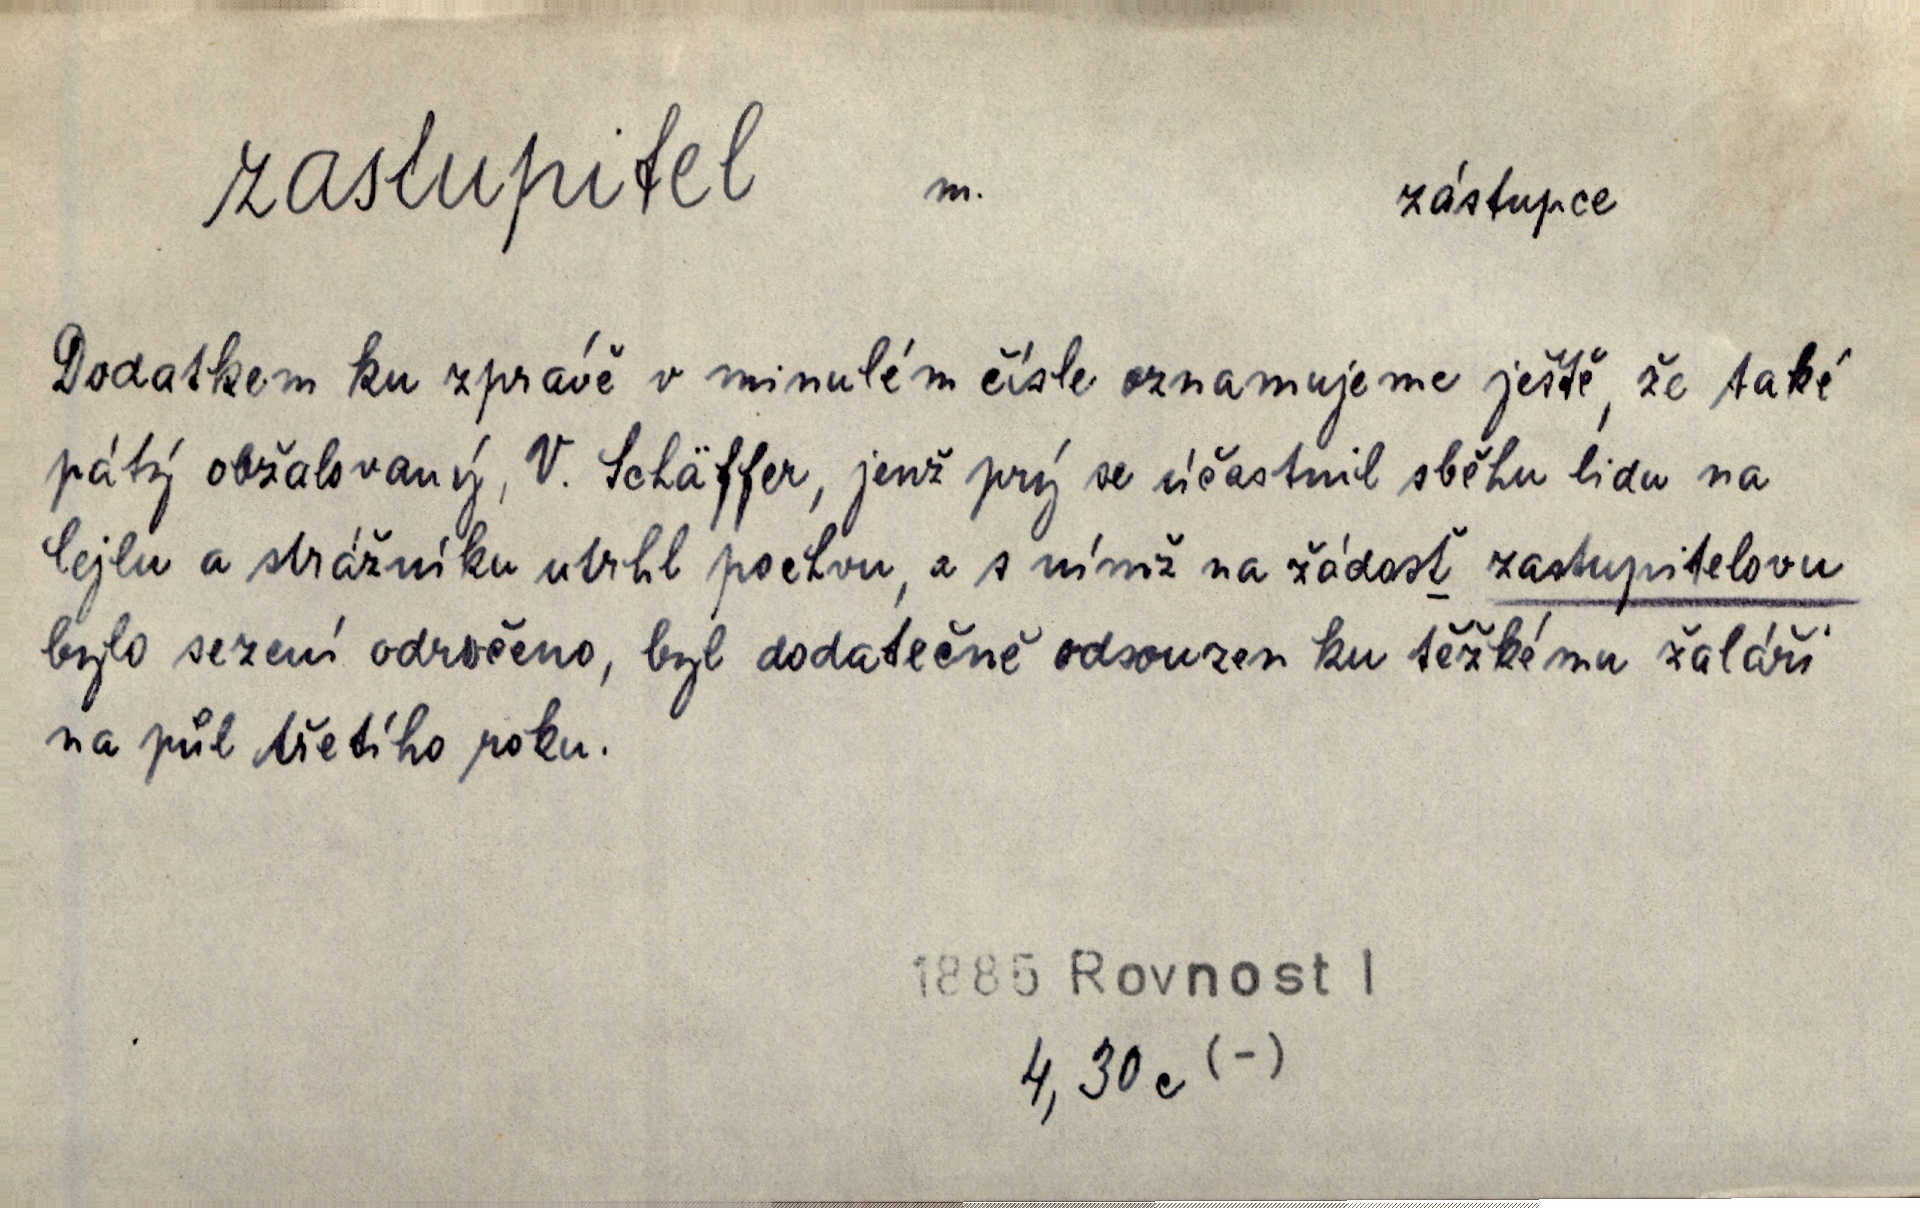 zastupitel m. zástupce
Dodatkem ku zprávě v minulém čísle oznamujeme ještě, že také
pátý obžalovaný, V. Schäffer, jenž prý se účastnil sběhu lidu na
Cejlu a strážníku utrhl pochvu, a s nímž na žádosť zastupitelovu
bylo sezení odročeno, byl dodatečně odsouzen ku těžkému žaláři
na půl třetího roku.
1885 Rovnost I
4, 30 c (-)